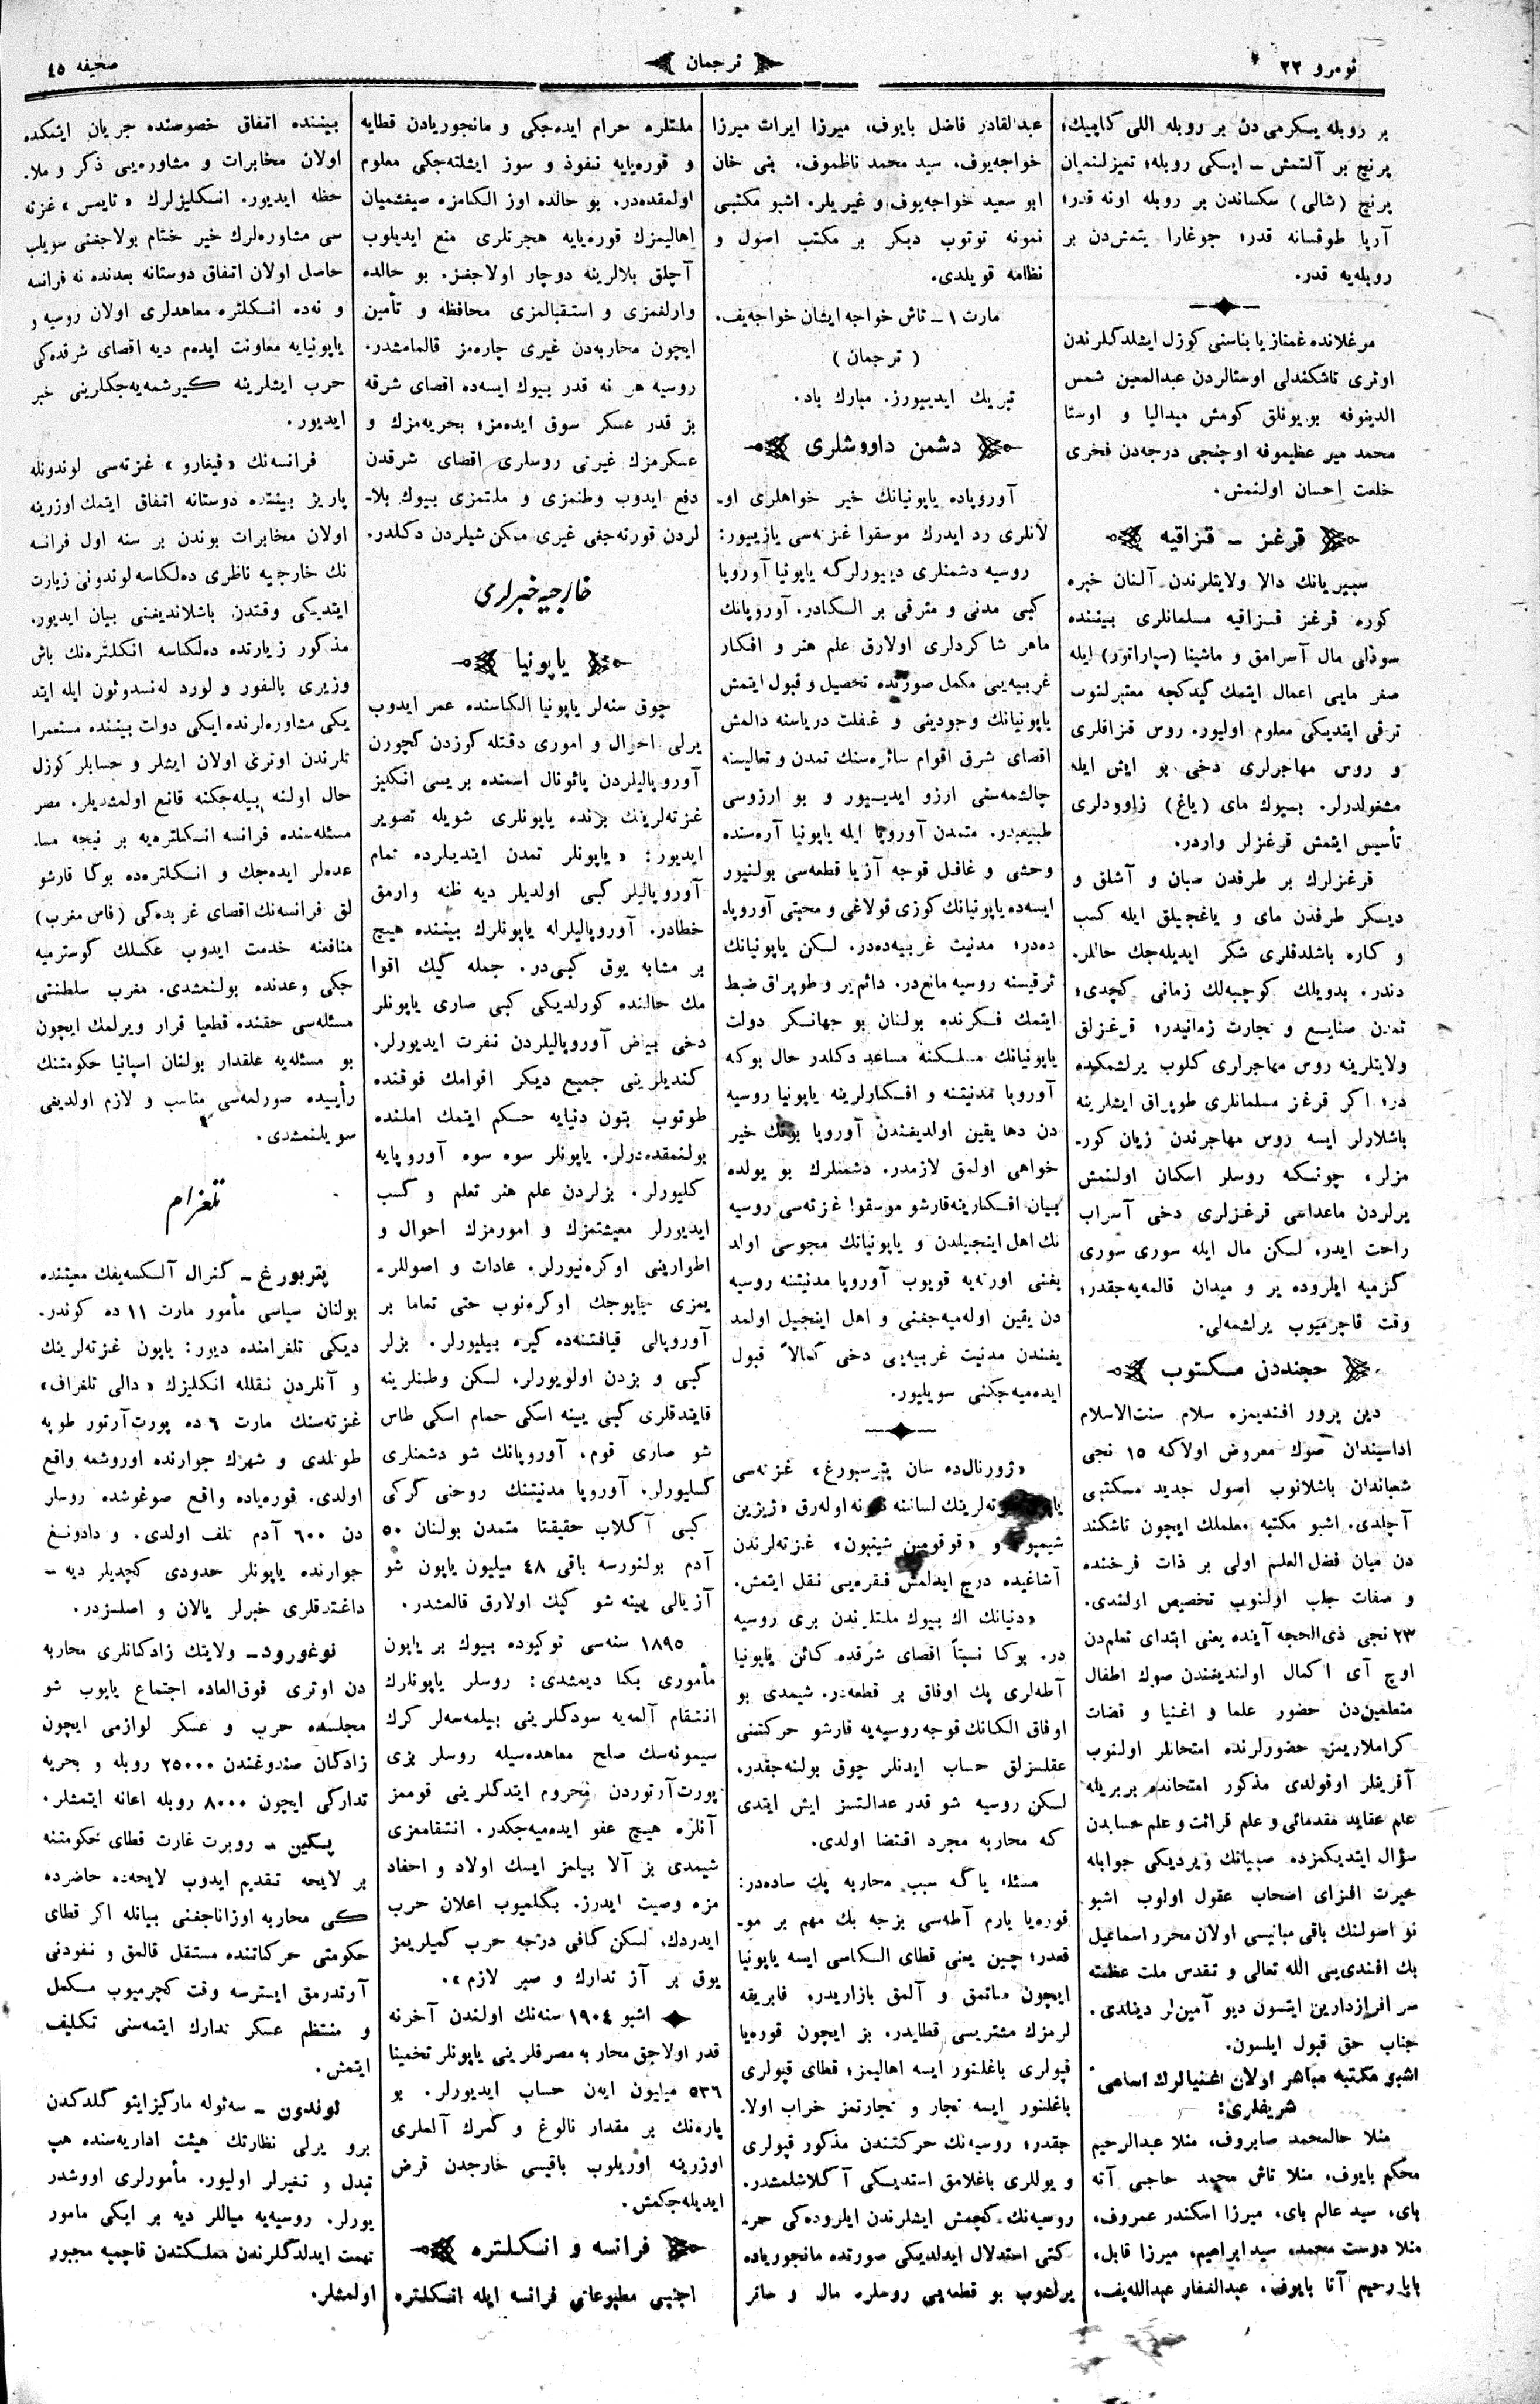 نومرو ٢٢
ترجمان
صحیفه ٤٥
بر روبله یسکرمی دن بر روبله اللی کاپیك؛
پرنچ بر آلتمش ــ ایسکی روبله؛ تمیزلنمیان
پرنچ (شالی) سکساندن بر روبله اونه قدر؛
آرپا طوقسانه قدر؛ جوغارا یتمش‌دن بر
روبله‌یه قدر.
مرغلانده غمنازیا بناسنی کوزل ایشلدگلرندن
اوتری تاشکندلی اوستالردن عبدالمعین شمس
الدینوفه بویونلق کومش میدالیا و اوستا
محمد میر عظیموفه اوچنجی درجه‌دن فخری
خلعت احسان اولنمش.
قرغز ــ قزاقیه
سیبریانك دالا ولایتلرندن آلنان خبره
کوره قرغز قزاقیه مسلمانلری بیننده
سودلی مال آسرامق و ماشینا (سپاراتور) ایله
صغر مایی اعمال ایتمك گیدکچه معتبرلنوب
ترقی ایتدیکی معلوم اولیور. روس قزاقلری
و روس مهاجرلری دخی بو ایش ایله
مشغولدرلر. بیوك مای (یاغ) زاوودلری
تأسیس ایتمش قرغزلر واردر.
قرغزلرك بر طرفدن صبان و آشلق و
دیکر طرفدن مای و یاغجیلق ایله کسب
و کاره باشلدقلری شکر ایدیله‌جك حاللر‌ـ
دندر. بدویلك کوچبه‌لك زمانی کچدی؛
تمدن صنایع و تجارت زمانیدر؛ قرغزلق
ولایتلرینه روس مهاجرلری کلوب یرلشمکده
در؛ اکر قرغز مسلمانلری طوپراق ایشلرینه
باشلارلر ایسه روس مهاجرندن زیان کور‌ـ
مزلر. چونکه روسلر اسکان اولنمش
یرلردن ماعداسی قرغزلری دخی آسراب
راحت ایدر. لسکن مال ایله سوری سوری
گزمیه ایلروده یر و میدان قالمه‌یه‌جقدر؛
وقت قاچرمیوب یرلشمه‌لی.
حجنددن مکتوب
دین پرور افندیمزه سلام سنت‌الاسلام
اداسیندان صوك معروض اولاکه ١٥ نجی
شعباندان باشلانوب اصول جدید مکتبی
آچلدی. اشبو مکتبه معلملك ایچون تاشکند
دن میان فضل العلم اولی بر ذات فرخنده
و صفات جلب اولنوب تخصیص اولندی.
٢٣ نجی ذی‌الحجه آینده یعنی ابتدای تعلم‌دن
اوچ آی اکمال اولندیغندن صوك اطفال
متعلمین‌دن حضور علما و اغنیا و قضات
کراملاریمز حضورلرنده امتحانلر اولنوب
آفرینلر اوقولدی مذکور امتحانده بربریله
علم عقاید مقدماتی و علم قرائت و علم حسابدن
سؤال ایتدیکمزده صبیانك ویردیکی جوابله
حیرت افزای اصحاب عقول اولوب اشبو
نو اصولنك باقی مبانیسی اولان محرر اسماعیل
بك افندی‌یی الله تعالی و تقدس ملت عظمته
سر افرازدارین ایتسون دیو آمین‌لر دینلدی.
جناب حق قبول ایلسون.
اشبو مکتبه مباهر اولان اغنیالرك اسامی
شریفلری:
منلا حالمحمد صابروف، منلا عبدالرحیم
محکم بایوف، منلا تاش محمد حاجی آته
بای، سید عالم بای، میرزا اسکندر عمروف،
منلا دوست محمد، سید ابراهیم، میرزا قابل،
بابا رحیم آتا بایوف، عبدالغفار عبدالله‌یف،
عبدالقادر فاضل بایوف، میرزا ایرات میرزا
خواجه‌یوف، سید محمد ناظموف، بنی خان
ابو سعید خواجه‌یوف و غیریلر. اشبو مکتبی
نمونه توتوب دیکر بر مکتب اصول و
نظامه قویلدی.
مارت ١ ــ تاش خواجه ایشان خواجه‌یف.
(ترجمان)
تبریك ایدییورز. مبارك باد.
دشمن داووشلری
آوروپاده یاپونیانك خیر خواهلری او‌ـ
لانلری رد ایدرك موسقوا غزته‌سی یازییور:
روسیه دشمنلری دییورلرکه یاپونیا آوروپا
کبی مدنی و مترقی بر الکادر. آوروپانك
ماهر شاکردلری اولارق علم هنر و افکار
غربیه‌یی مکمل صورتده تحصیل و قبول ایتمش
یاپونیانك وجودینی و غفلت دریاسنه دالمش
اقصای شرق اقوام سائره‌سنك تمدن و تعالیسنه
چالشمه‌سنی ارزو ایدیبور و بو ارزوسی
طبیعیدر. متمدن آوروپا ایله یاپونیا آره‌سنده
وحشی و غافل قوجه آزیا قطعه‌سی بولنیور
ایسه‌ده یاپونیانك کوزی قولاغی و محبتی آوروپا‌ـ
ده‌در؛ مدنیت غربیه‌ده‌در. لکن یاپونیانك
ترقیسنه روسیه مانع‌در. دائم یر و طوپراق ضبط
ایتمك فکرنده بولنان بو جهانکر دولت
یاپونیانك مسلکنه مساعد دکلدر حال بوکه
آوروپا تمدنیتنه و افکارلرینه یاپونیا روسیه
دن دها یقین اولدیغندن آوروپا بونك خیر
خواهی اولمق لازمدر. دشمنلرك بو یولده
بیان افکارینه قارشو موسقوا غزته‌سی روسیه
نك اهل اینجیلدن و یاپونیانك مجوسی اولد
یغنی اورته‌یه قویوب آوروپا مدنیتنه روسیه
دن یقین اوله‌میه‌جغنی و اهل اینجیل اولمد
یغندن مدنیت غربیه‌یی دخی کمالاً قبول
ایده‌میه‌جکنی سویلیور.
«ژورنال‌ده سان پترسبورغ» غزته‌سی
لرینك لسانته اوله‌رق «ژیژین
و «قوقومین شینبون» غزته‌لرندن
آشاغیده درج ایدلمش فقره‌یی نقل ایتمش.
«دنیانك اك بیوك ملتلرندن بری روسیه
در. بوکا نسبتاً اقصای شرقده کائن یاپونیا
آطه‌لری پك اوفاق بر قطعه‌در. شیمدی بو
اوفاق الکانك قوجه روسیه‌یه قارشو حرکتنی
عقلسزلق حساب ایدنلر چوق بولنه‌جقدر.
لسکن روسیه شو قدر عدالتسز ایش ایتدی
که محاربه مجرد اقتضا اولدی.
مسئله یاکه سبب محاربه پك ساده‌در:
قوره‌یا یارم آطه‌سی بزجه بك مهم بر مو‌ـ
قعدر؛ چین یعنی قطای الکاسی ایسه یاپونیا
ایچون صاتمق و آلمق بازاریدر. فابریقه
لرمزك مشتریسی قطایدر. بز ایچون قوره‌یا
قپولری باغلنور ایسه اهالیمز؛ قطای قپولری
باغلنور ایسه تجار و تجارتمز خراب اولا‌ـ
جقدر؛ روسیه‌نك حرکتندن مذکور قپولری
و یوللری باغلامق استدیکی آکلاشلمشدر.
روسیه‌نك کچمش ایشلرندن ایلروده‌کی حر‌ـ
کتی استدلال ایدلدیکی صورتده مانجوریاده
یرلشوب بو قطعه‌یی روسلره مال و سائر
ملتلره حرام ایده‌جکی و مانجوریادن قطایه
و قوره‌یایه نفوذ و سوز ایشلته‌جکی معلوم
اولمقده‌در. بو حالده اوز الکامزه صیغشمیان
اهالیمزك قوره‌یایه هجرتلری منع ایدیلوب
آچلق بلالرینه دوچار اولاجغز. بو حالده
وارلغمزی و استقبالمزی محافظه و تأمین
ایچون محاربه‌دن غیری چاره‌مز قالمامشدر.
روسیه هر نه قدر بیوك ایسه‌ده اقصای شرقه
بز قدر عسکر سوق ایده‌مز؛ بحریه‌مزك و
عسکرمزك غیرتی روسلری اقصای شرقدن
دفع ایدوب وطنمزی و ملتمزی بیوك بلا‌ـ
لردن قورته‌جغی غیری ممکن شیلردن دکلدر.
خارجیه خبرلری
یاپونیا
چوق سنه‌لر یاپونیا الکاسنده عمر ایدوب
یرلی احوال و اموری دقتله گوزدن گچورن
آوروپالیلردن پائونال اسمنده بریسی انکلیز
غزته‌لرینك برنده یاپونلری شویله تصویر
ایدیور: «یاپونلر تمدن ایتدیلرده تمام
آوروپالیلر کبی اولدیلر دیه ظنه وارمق
خطادر. آوروپالیلرله یاپونلرك بیننده هیچ
بر مشابه یوق کبی‌در. جمله گیك اقوا
مك حالنده کورلدیکی کبی صاری یاپونلر
دخی بیاض آوروپالیلردن نفرت ایدیورلر.
کندیلرینی جمیع دیکر اقوامك فوقنده
طوتوب بتون دنیایه حکم ایتمك املنده
بولنمقده‌درلر. یاپونلر سوه سوه آوروپایه
کلیورلر. بزلردن علم هنر تعلم و کسب
ایدیورلر معیشتمزك و امورمزك احوال و
اطوارینی اوکره‌نیورلر. عادات و اصوللر‌ـ
یمزی چاپوجك اوگره‌نوب حتی تماما بر
آوروپالی قیافتنه‌ده گیره بیلیورلر. بزلر
کبی و بزدن اولویورلر. لسکن وطنلرینه
قایتدقلری کبی یینه اسکی حمام اسکی طاس
شو صاری قوم. آوروپانك شو دشمنلری
کسلیورلر. آوروپا مدنیتنك روحنی گرکی
کبی آکلاب حقیقتا متمدن بولنان ٥٠
آدم بولنورسه باقی ٤٨ میلیون یاپون شو
آزیالی یینه شو کیك اولارق قالمشدر.
١٨٩٥ سنه‌سی توکیوده بیوك بر یاپون
مأموری بکا دیمشدی: روسلر یاپونلرك
انتقام آلمه‌یه سودگلرینی بیلمه‌سه‌لر کرك
سیمونه‌سك صلح معاهده‌سیله روسلر بزی
پورت آرتوردن محروم ایتدگلرینی قوممز
آنلره هیچ عفو ایده‌میه‌جکدر. انتقاممزی
شیمدی بز آلا بیلمز ایسك اولاد و احفاد
مزه وصیت ایدرز. بگلمیوب اعلان حرب
ایدردك، لسکن کافی درجه حرب گمیلریمز
یوق بر آز تدارك و صبر لازم».
اشبو ١٩٠٤ سنه‌نك اولندن آخرنه
قدر اولاجق محاربه مصرفلرینی یاپونلر تخمینا
٥٣٦ میلیون ایه‌ن حساب ایدیورلر. بو
پاره‌نك بر مقدار نالوغ و گمرك آلملری
اوزرینه اوریلوب باقیسی خارجدن قرض
ایدیله‌جکمش.
فرانسه و انکلتره
اجنبی مطبوعاتی فرانسه ایله انکلتره
بیننده اتفاق خصوصنده جریان ایتمکده
اولان مخابرات و مشاوره‌یی ذکر و ملا‌ـ
حظه ایدیور. انکلیزلرك «تایمس» غزته
سی مشاوره‌لرك خیر ختام بولاجغنی سویلیب
حاصل اولان اتفاق دوستانه بعدنده نه فرانسه
و نه‌ده انکلتره معاهدلری اولان روسیه و
یاپونیایه معاونت ایده‌م دیه اقصای شرقده‌کی
حرب ایشلرینه کیرشمه‌یه‌جکلرینی خبر
ایدیور.
فرانسه‌نك «فیغارو» غزته‌سی لوندونله
پاریز بیننده دوستانه اتفاق ایتمك اوزرینه
اولان مخابرات بوندن بر سنه اول فرانسه
نك خارجیه ناظری ده‌لکاسه لوندونی زیارت
ایتدیکی وقتدن باشلاندیغنی بیان ایدیور.
مذکور زیارتده ده‌لکاسه انکلتره‌نك باش
وزیری بالفور و لورد له‌نسدوئون ایله ایتد
یکی مشاوره‌لرنده ایکی دولت بیننده مستعمرا
تلرندن اوتری اولان ایشلر و حسابلر کوزل
حال اولنه بیله‌جکنه قانع اولمشدیلر. مصر
مسئله‌سنده فرانسه انکلتره‌یه بر نیجه مسا‌ـ
عده‌لر ایده‌جك و انکلتره‌ده بوکا قارشو
لق فرانسه‌نك اقصای غربده‌کی (فاس مغرب)
منافعنه خدمت ایدوب عکسلك کوسترمیه
جکی وعدنده بولنمشدی. مغرب سلطنتی
مسئله‌سی حقنده قطعیا قرار ویرلمك ایچون
بو مسئله‌یه علقدار بولنان اسپانیا حکومتنك
رأییده صورلمه‌سی مناسب و لازم اولدیغی
سویلنمشدی.
تلغرام
پتربورغ ــ کنرال آلکسه‌یفك معیتنده
بولنان سیاسی مأمور مارت ١١ ده کوندر‌ـ
دیکی تلغرامنده دیور: یاپون غزته‌لرینك
و آنلردن نقلله انکلیزك «دالی تلغراف»
غزته‌سنك مارت ٦ ده پورت آرتور طوپه
طوتلدی و شهرك جوارنده اوروشمه واقع
اولدی. قوره‌یاده واقع صوغوشده روسلر
دن ٦٠٠ آدم تلف اولدی. و دادونغ
جوارنده یاپونلر حدودی کچدیلر دیه ــ
داغتدقلری خبرلر یالان و اصلسزدر.
نوغورود ــ ولایتك زادکانلری محاربه
دن اوتری فوق‌العاده اجتماع یاپوب شو
مجلسده حرب و عسکر لوازمی ایچون
زادکان صندوغندن ٢٥٠٠٠ روبله و بحریه
تدارکی ایچون ٨٠٠٠ روبله اعانه ایتمشلر.
پسکین ــ روبرت غارت قطای حکومتنه
بر لایحه تقدیم ایدوب لایحه‌ده حاضرده
کی محاربه اوزاناجغنی بیانله اکر قطای
حکومتی حرکاتنده مستقل قالمق و نفوذنی
آرتدرمق ایسترسه وقت کچرمیوب مکمل
و منتظم عسکر تدارك ایتمه‌سنی تکلیف
ایتمش.
لوندون ــ سه‌ئوله مارکیزایتو گلدکدن
برو یرلی نظارتك هیئت اداریه‌سنده هپ
تبدل و تغیرلر اولیور. مأمورلری اووشدر
یورلر. روسیه‌یه میاللر دیه بر ایکی مامور
تهمت ایدلدگلرندن مملکتدن قاچمیه مجبور
اولمشلر.